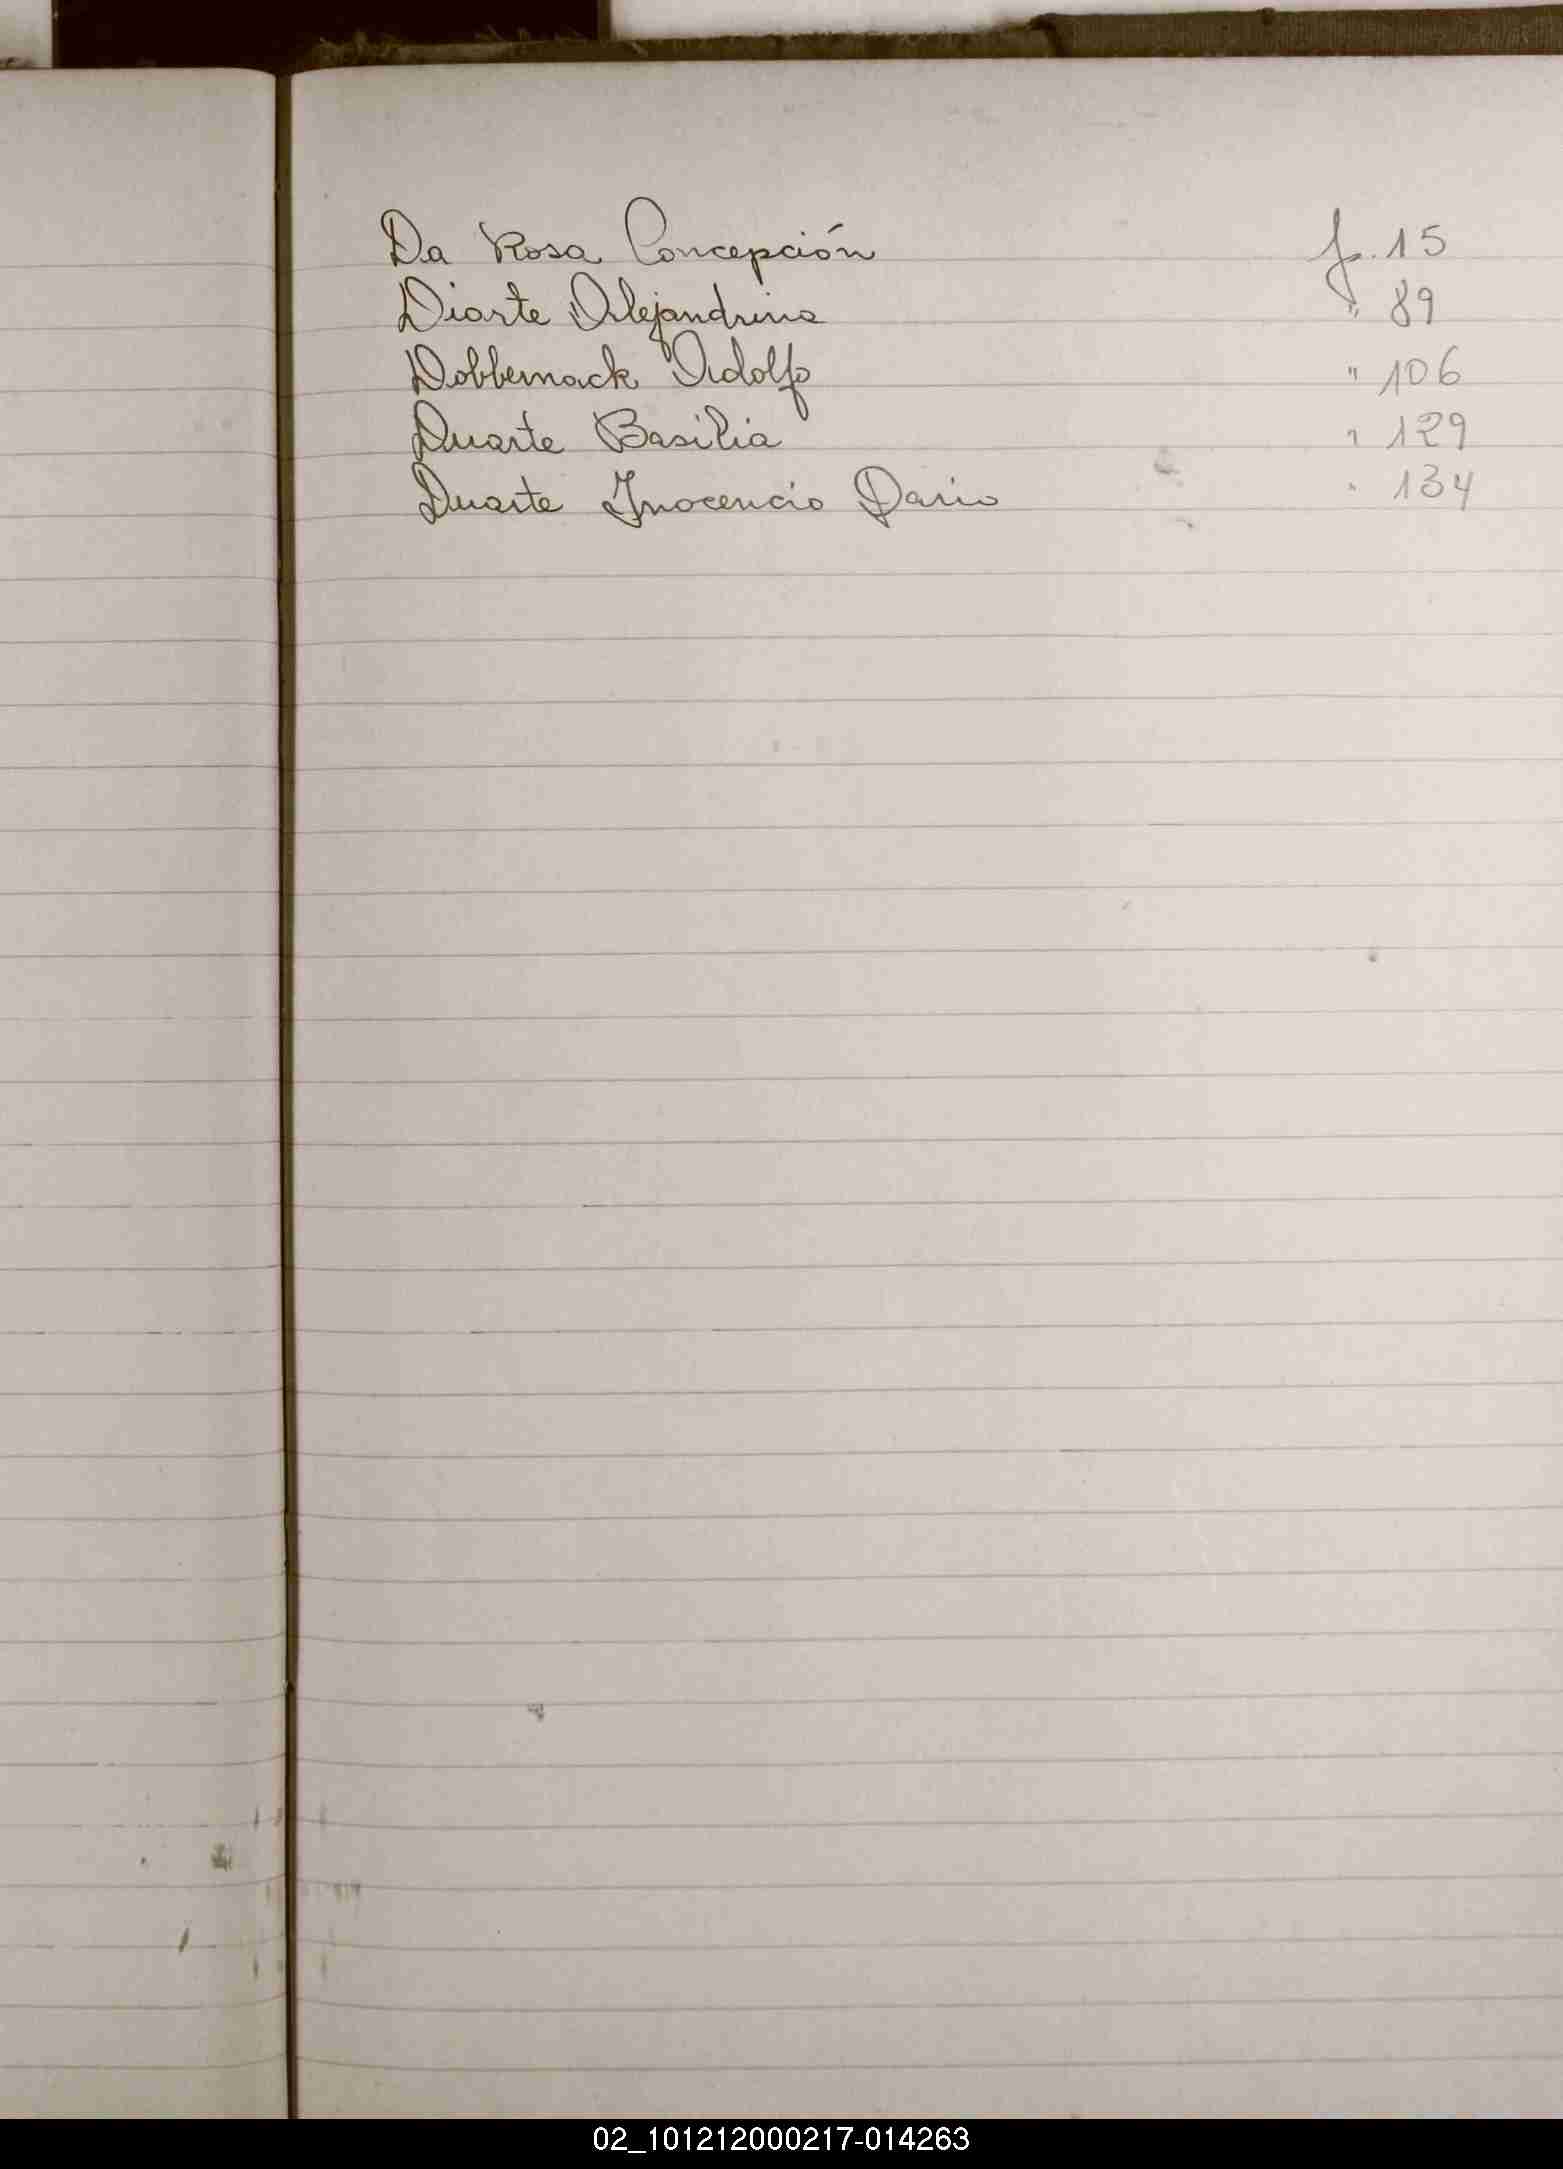 Da Rosa Concepción f. 15
Diarte Alejandrina " 89
Dobbernack Adolfo " 106
Duarte Basilia " 129
Duarte Inocencio Dario " 134
02_101212000217-014263